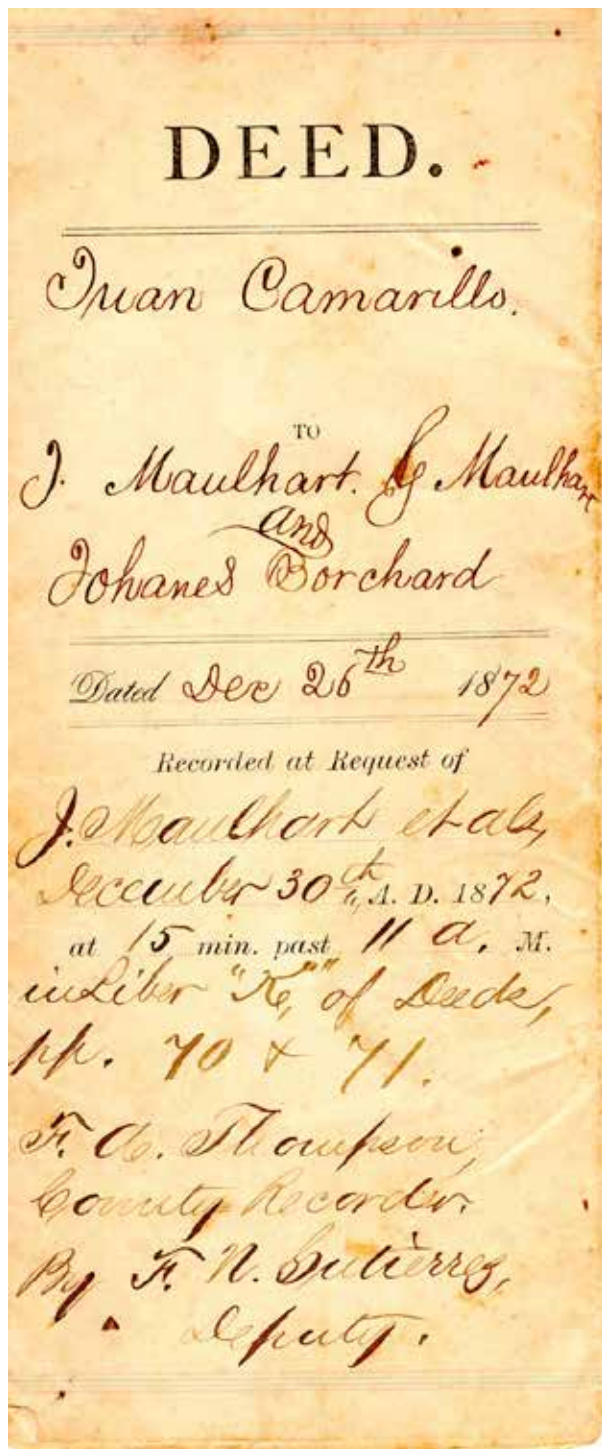 DEED.
Juan Camarillo.
TO
J. Maulhart. G Maulhart
and
Johanes Borchard
Dated Dec 26th 1872
Recorded at Request of
J. Maulhart et als,
December 30th, A. D. 1872,
at 15 min. past 11 a. M.
in Liber "K" of Deeds,
pp. 70 & 71.
F. A. Thompson,
County Recorder.
By F. N. Gutierrez,
Deputy.